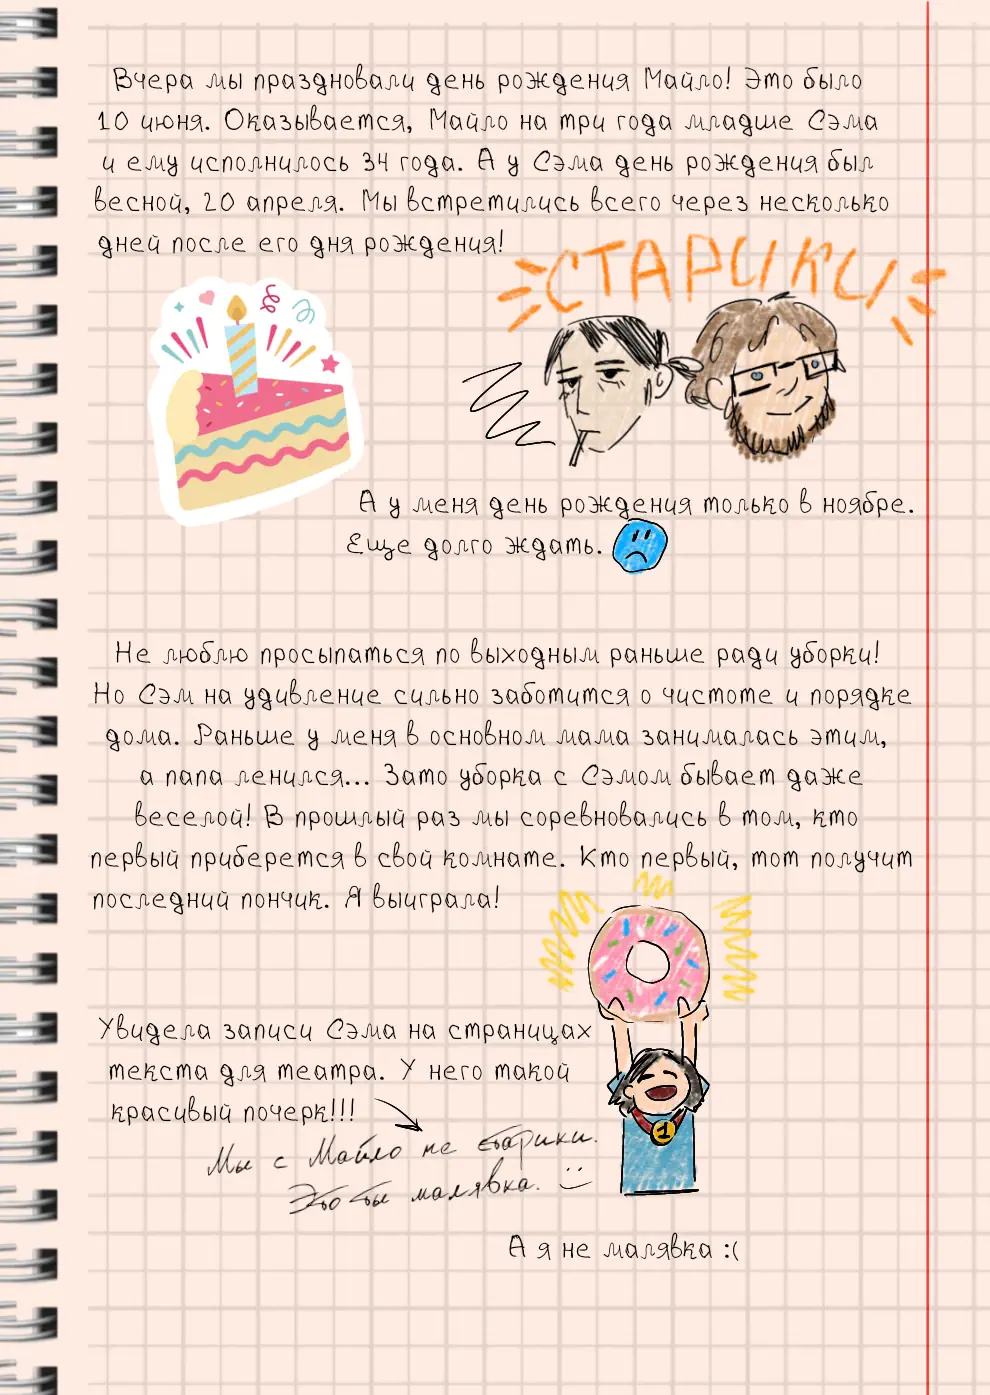 Вчера мы праздновали день рождения Майло! Это было
10 июня. Оказывается, Майло на три года младше Сэма
и ему исполнилось 34 года. А у Сэма день рождения был
весной, 20 апреля. Мы встретились всего через несколько
дней после его дня рождения!
СТАРИКИ
А у меня день рождения только в ноябре.
Еще долго ждать.
Не люблю просыпаться по выходным раньше ради уборки!
Но Сэм на удивление сильно заботится о чистоте и порядке
дома. Раньше у меня в основном мама занималась этим,
а папа ленился... Зато уборка с Сэмом бывает даже
веселой! В прошлый раз мы соревновались в том, кто
первый приберется в свой комнате. Кто первый, тот получит
последний пончик. Я выиграла!
1
Увидела записи Сэма на страницах
текста для театра. У него такой
красивый почерк!!!
Мы с Майло не старики.
Это ты малявка. :)
А я не малявка :(